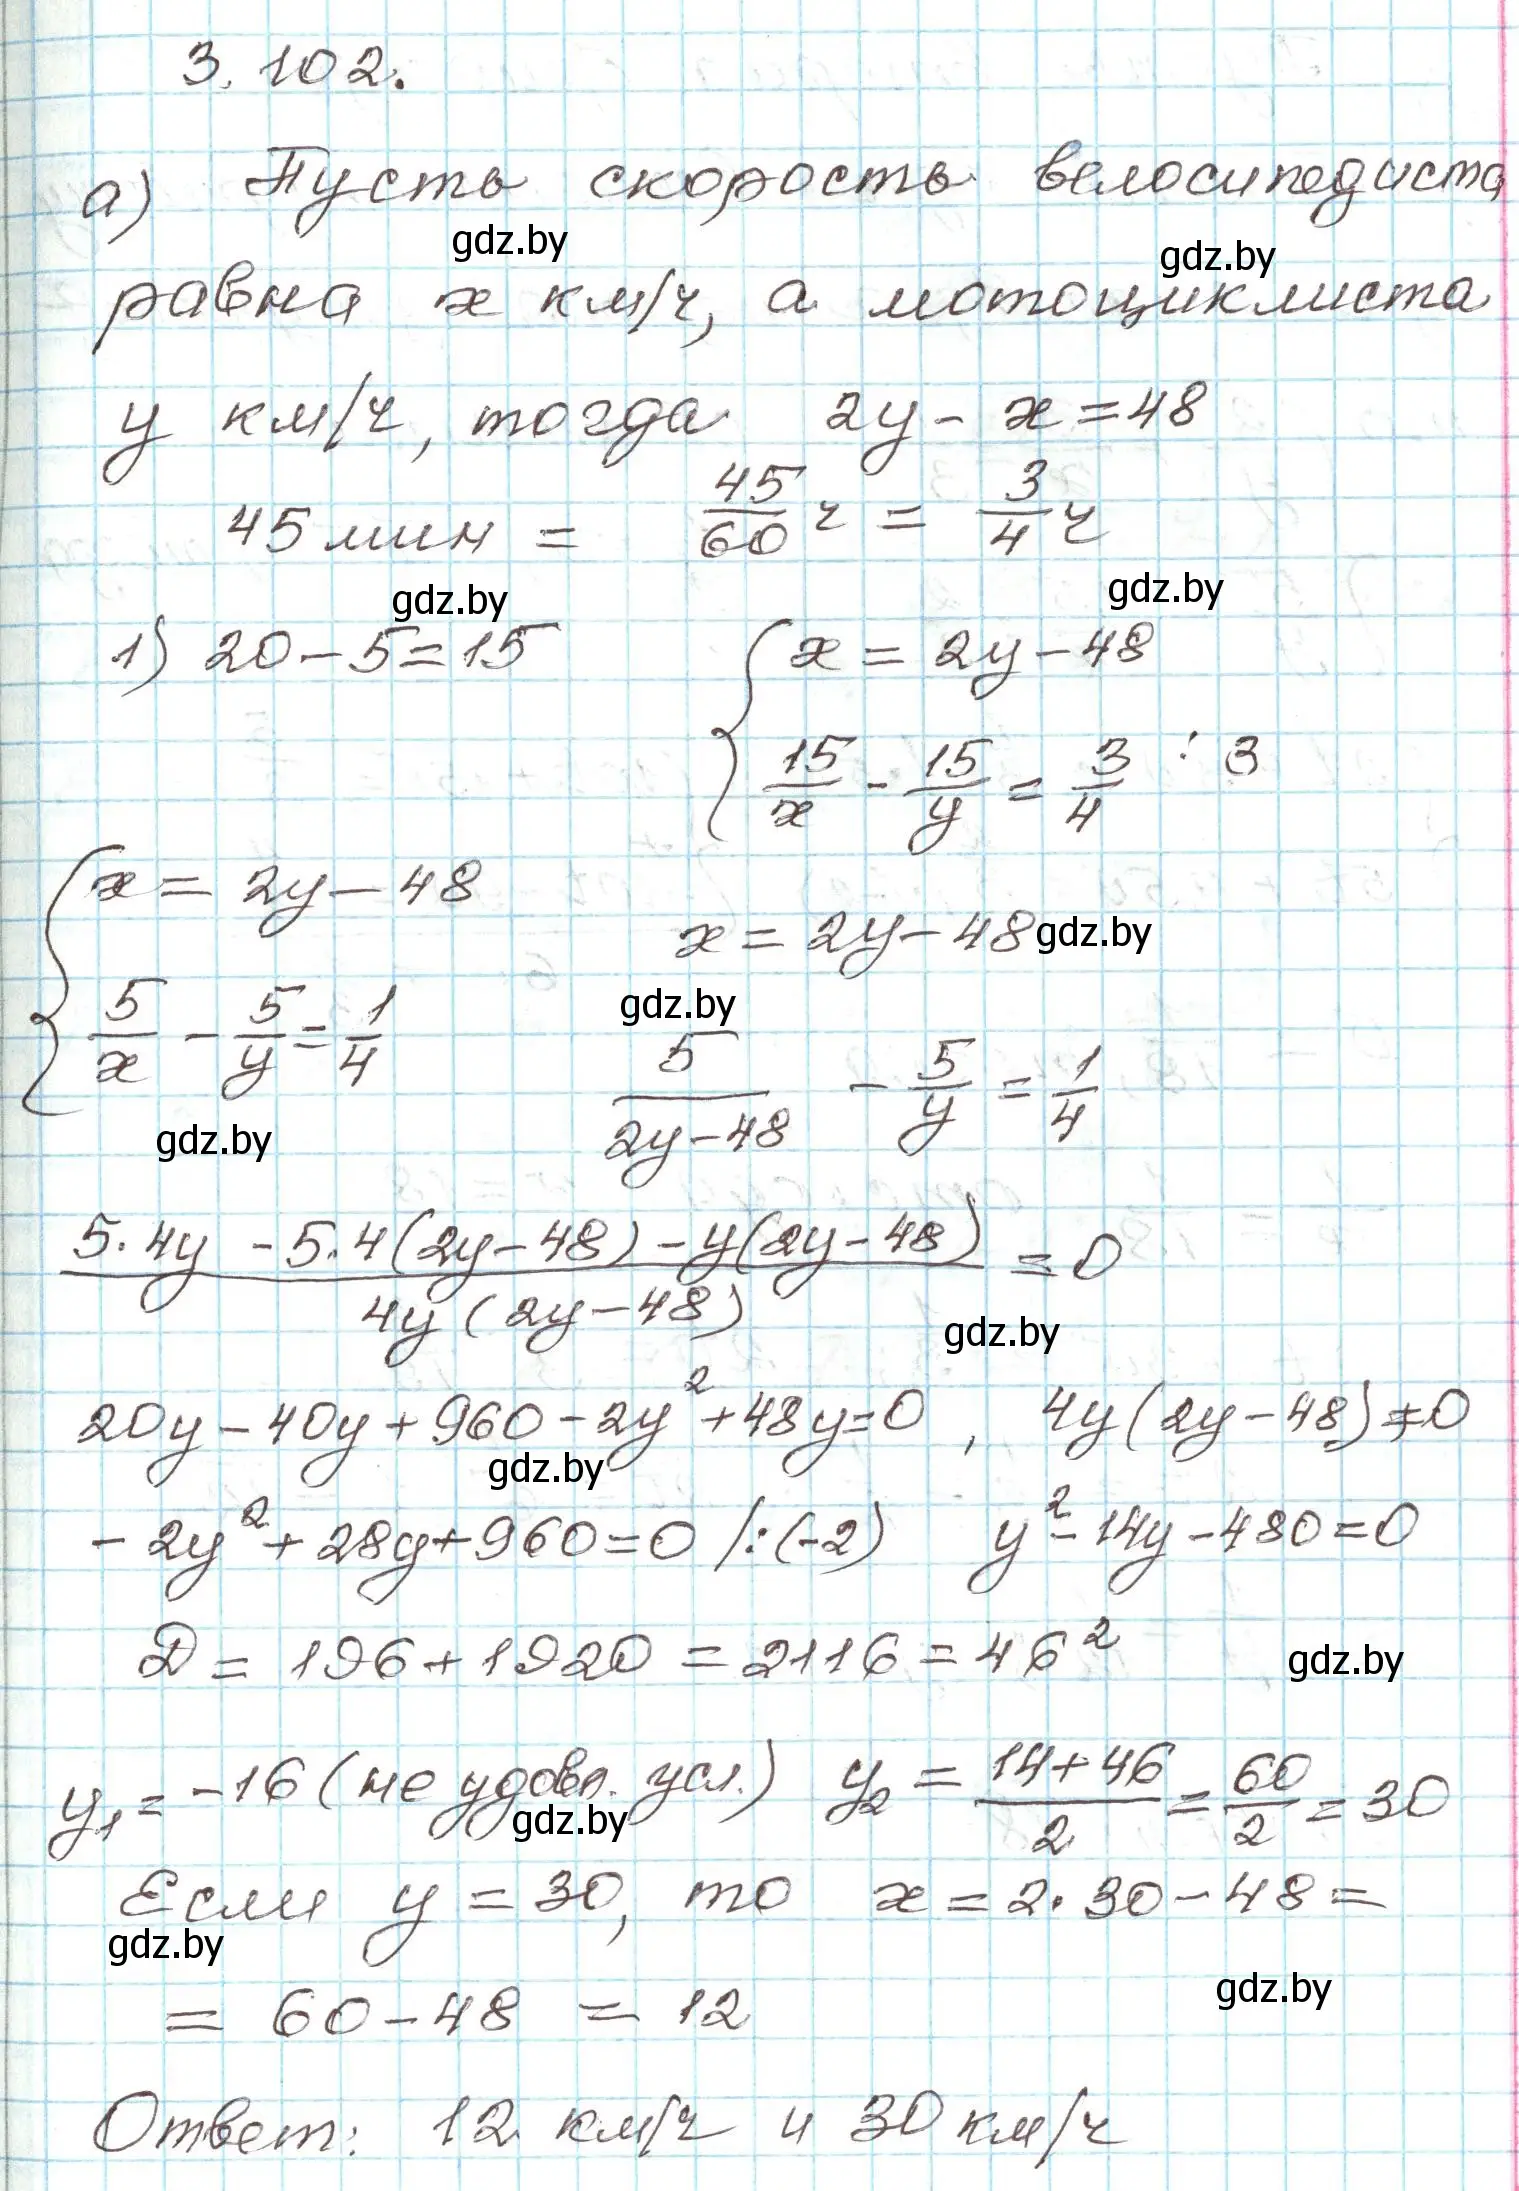 3.102.
а) Пусть скорость велосипедиста
gdz.by gdz.by
равна x км/ч, а мотоциклиста
y км/ч, тогда 2y - x = 48
45 мин = 45/60 ч = 3/4 ч
gdz.by gdz.by
1) 20 - 5 = 15 { x = 2y - 48
15/x - 15/y = 3/4 : 3
{ x = 2y - 48 x = 2y - 48 gdz.by
gdz.by
5/x - 5/y = 1/4 5/(2y - 48) - 5/y = 1/4
gdz.by
(5·4y - 5·4(2y - 48) - y(2y - 48))/(4y(2y - 48)) = 0
gdz.by
20y - 40y + 960 - 2y² + 48y = 0, 4y(2y - 48) ≠ 0
gdz.by
- 2y² + 28y + 960 = 0 /:(-2) y² - 14y - 480 = 0
D = 196 + 1920 = 2116 = 46² gdz.by
y₁ = -16 (не удовл. усл.) y₂ = (14 + 46)/2 = 60/2 = 30
gdz.by
Если y = 30, то x = 2·30 - 48 =
gdz.by
gdz.by
= 60 - 48 = 12
Ответ: 12 км/ч и 30 км/ч